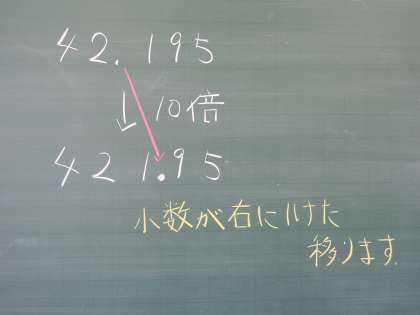 42.195
↓10倍
421.95
小数が右に1けた
移ります